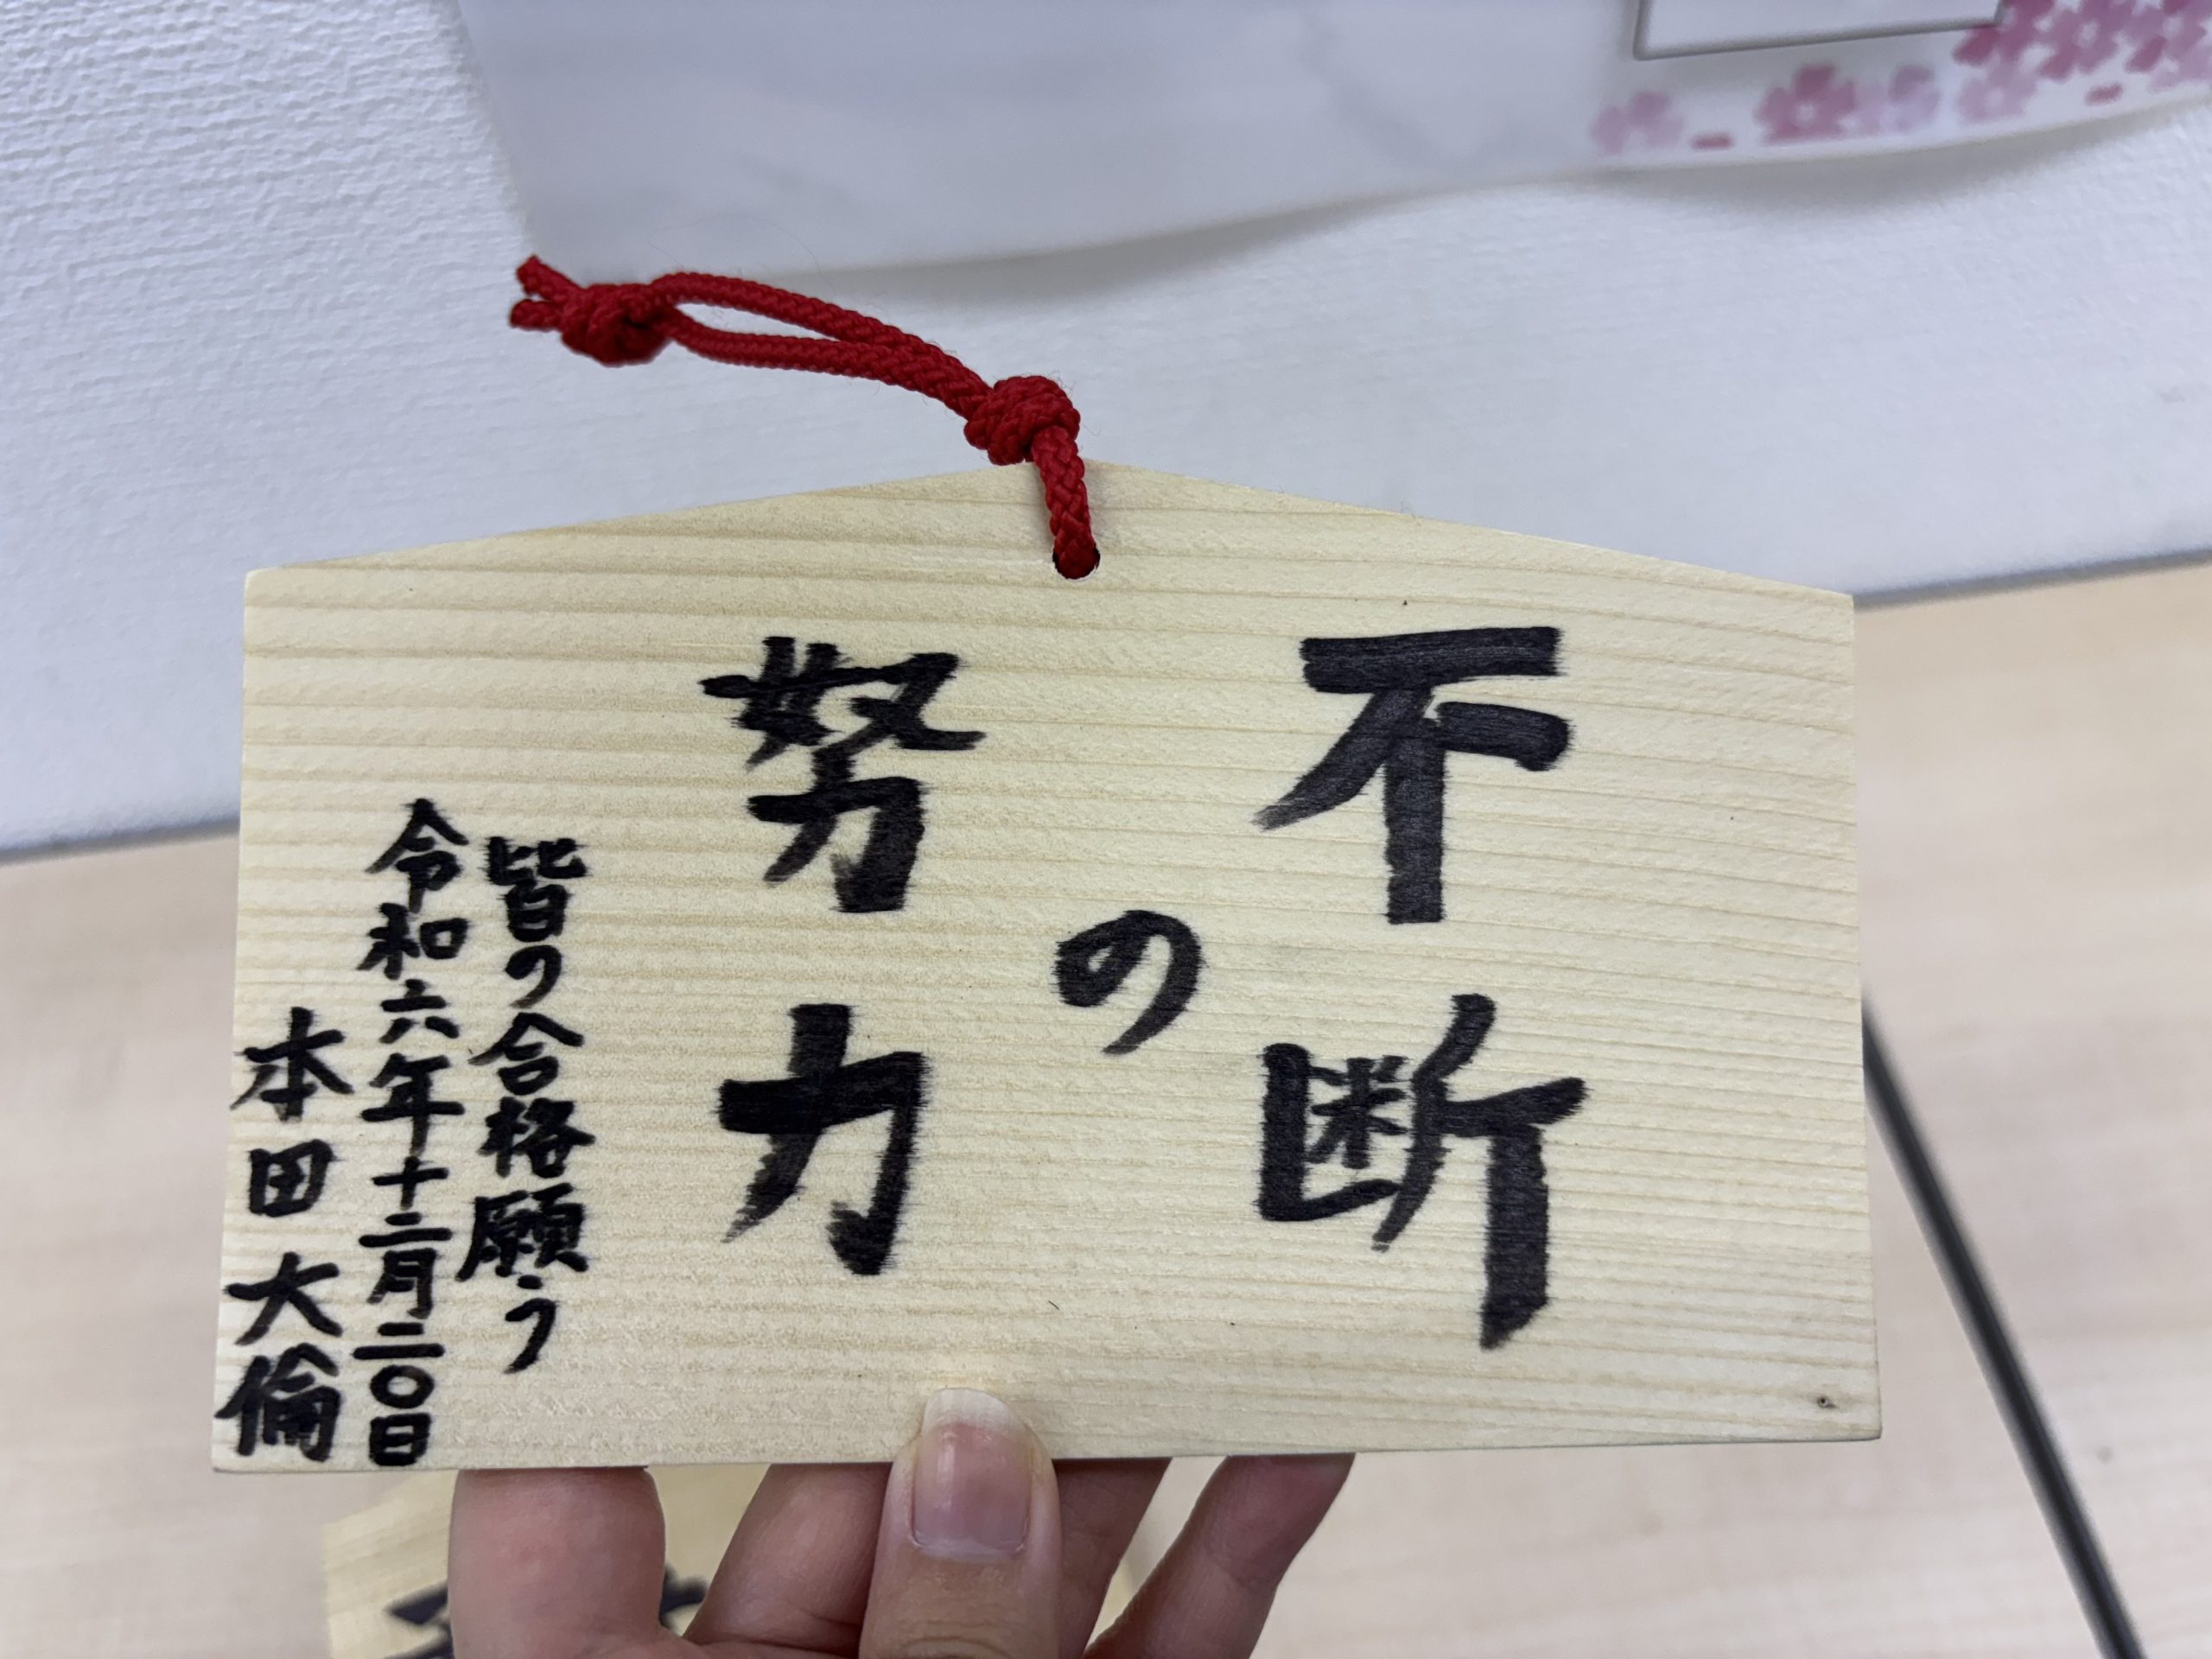 不断
の
努力
皆の合格願う
令和六年十二月二〇日
本田大倫